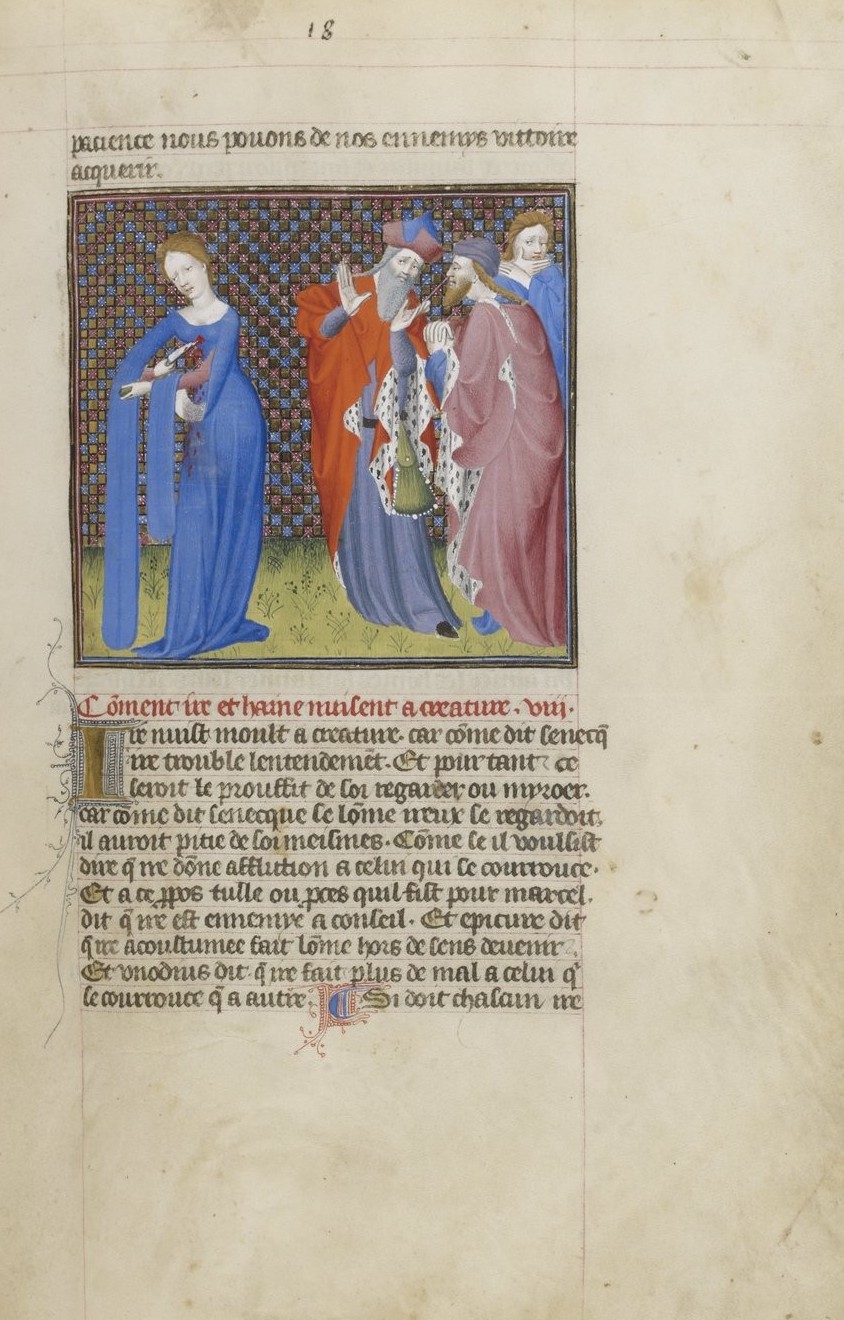 18
pacience nous pouons de nos ennemys vittoire
acquerir.
Cōment ire et haine nuisent a creature. viii.
Ire nuist moult a creature. car cōme dit senecq̄
ire trouble lentendemēt. Et pour tant ce
seroit le prouffit de soi regarder ou miroer.
car cōme dit senecque se lōme ireux se regardoit.
il auroit pitie de soi meismes. Cōme se il voulsist
dire q̄ ire dōne affliction a celui qui se courrouce.
Et a ce ꝓpos tulle ou ꝓces quil fist pour marcel.
dit q̄ ire est ennemye a conseil. Et epicure dit
q̄ ire acoustumee fait lōme hors de sens deuenir.
Et dit q̄ ire fait plus de mal a celui q̄
se courrouce q̄ a autre. Si doit chascun ire